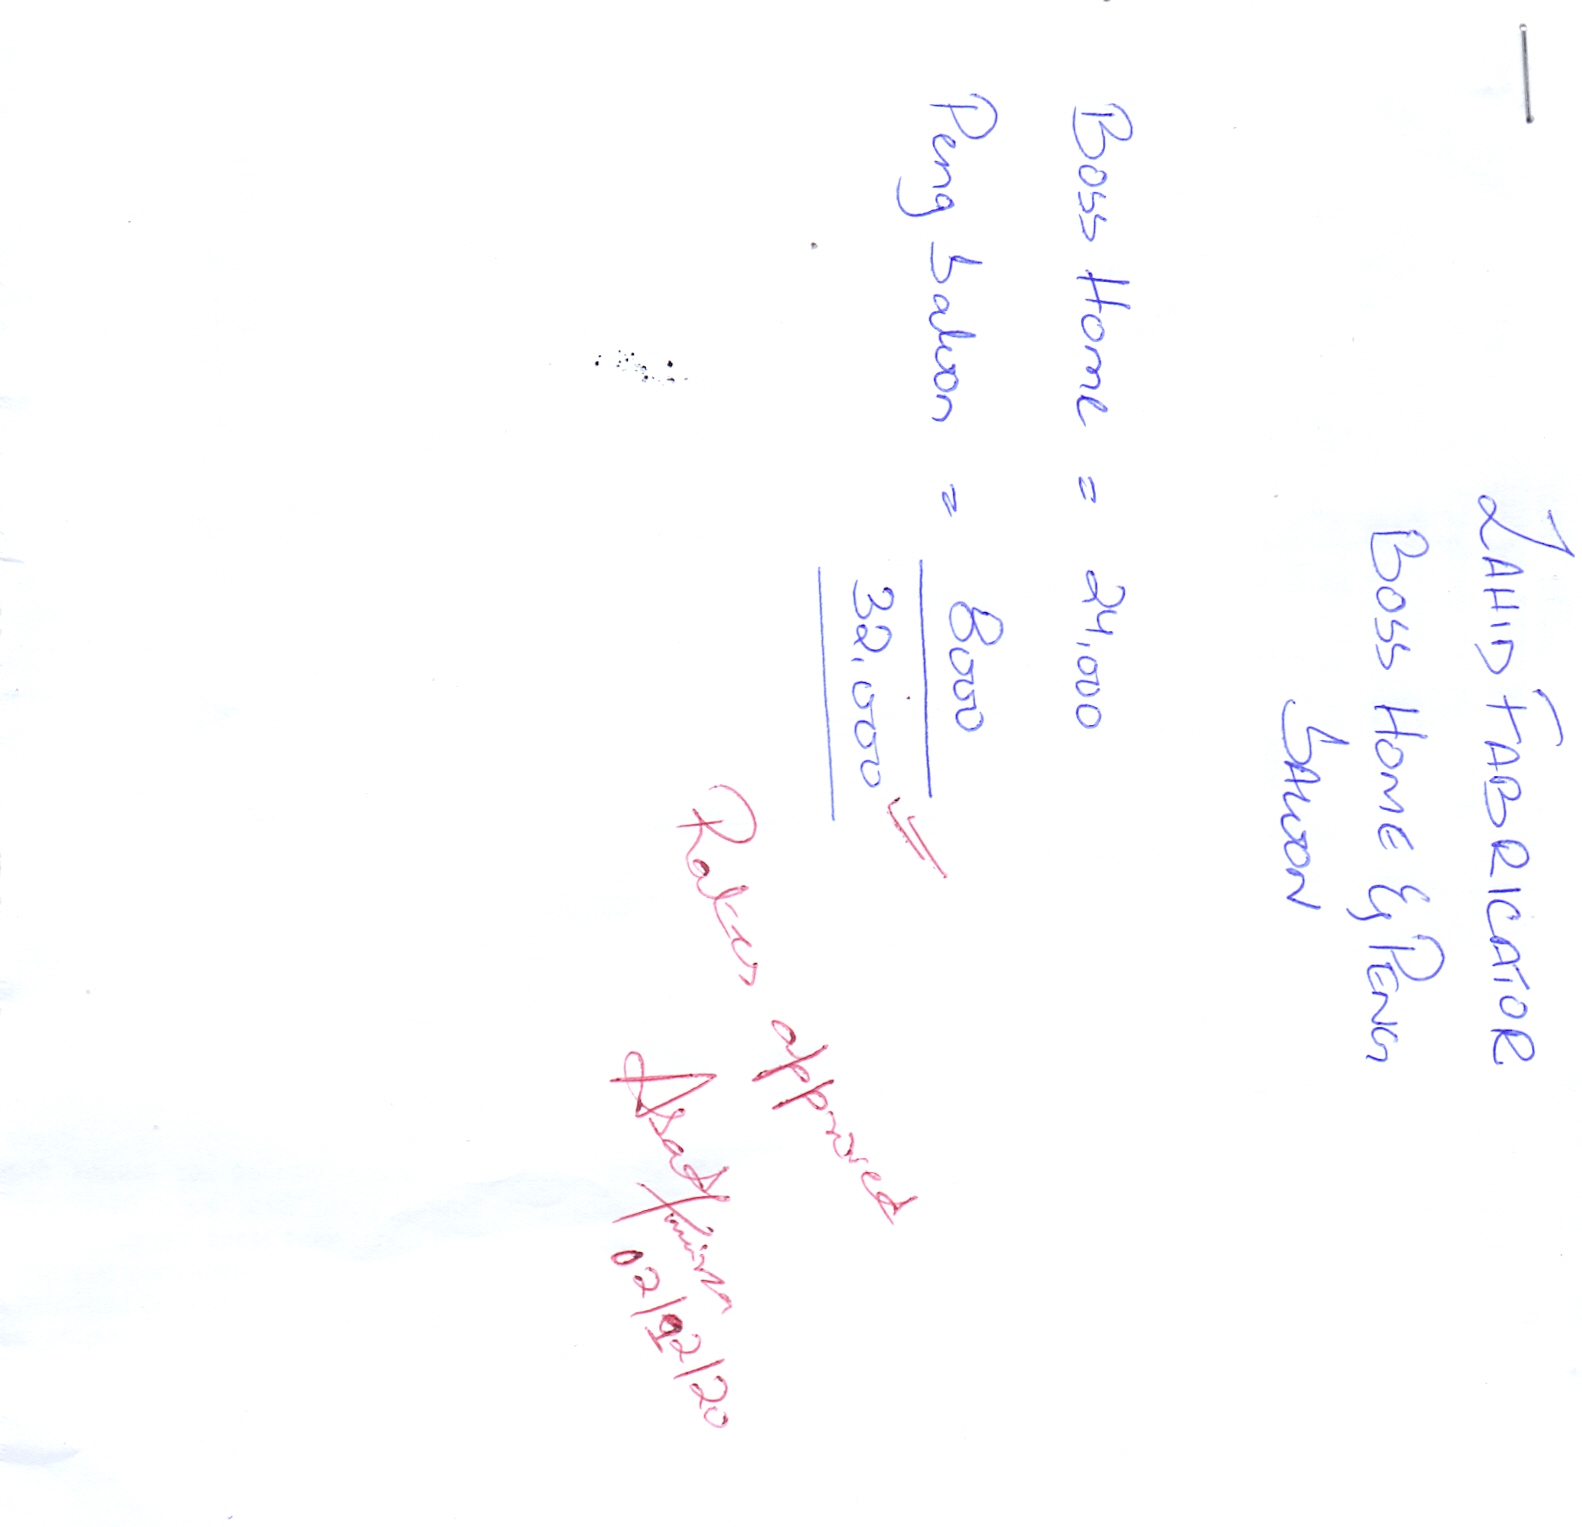 ZAHID FABRICATOR
BOSS HOME & PENG
SALOON
Boss Home = 24,000
Peng Saloon = 8000
32,000
Rates approved
02/02/20